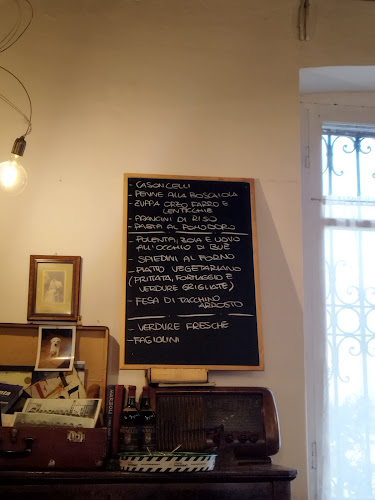 - CASONCELLI
- PENNE ALLA BOSCAIOLA
- ZUPPA ORZO FARRO E
LENTICCHIE
- ARANCINI DI RISO
- PASTA AL POMODORO
- POLENTA, ZOIA E UOVO
ALL'OCCHIO DI BUE
- SPIEDINI AL FORNO
- PIATTO VEGETARIANO
(FRITTATA, FORMAGGIO E
VERDURE GRIGLIATE)
- FESA DI TACCHINO
ARROSTO
- VERDURE FRESCHE
- FAGIOLINI